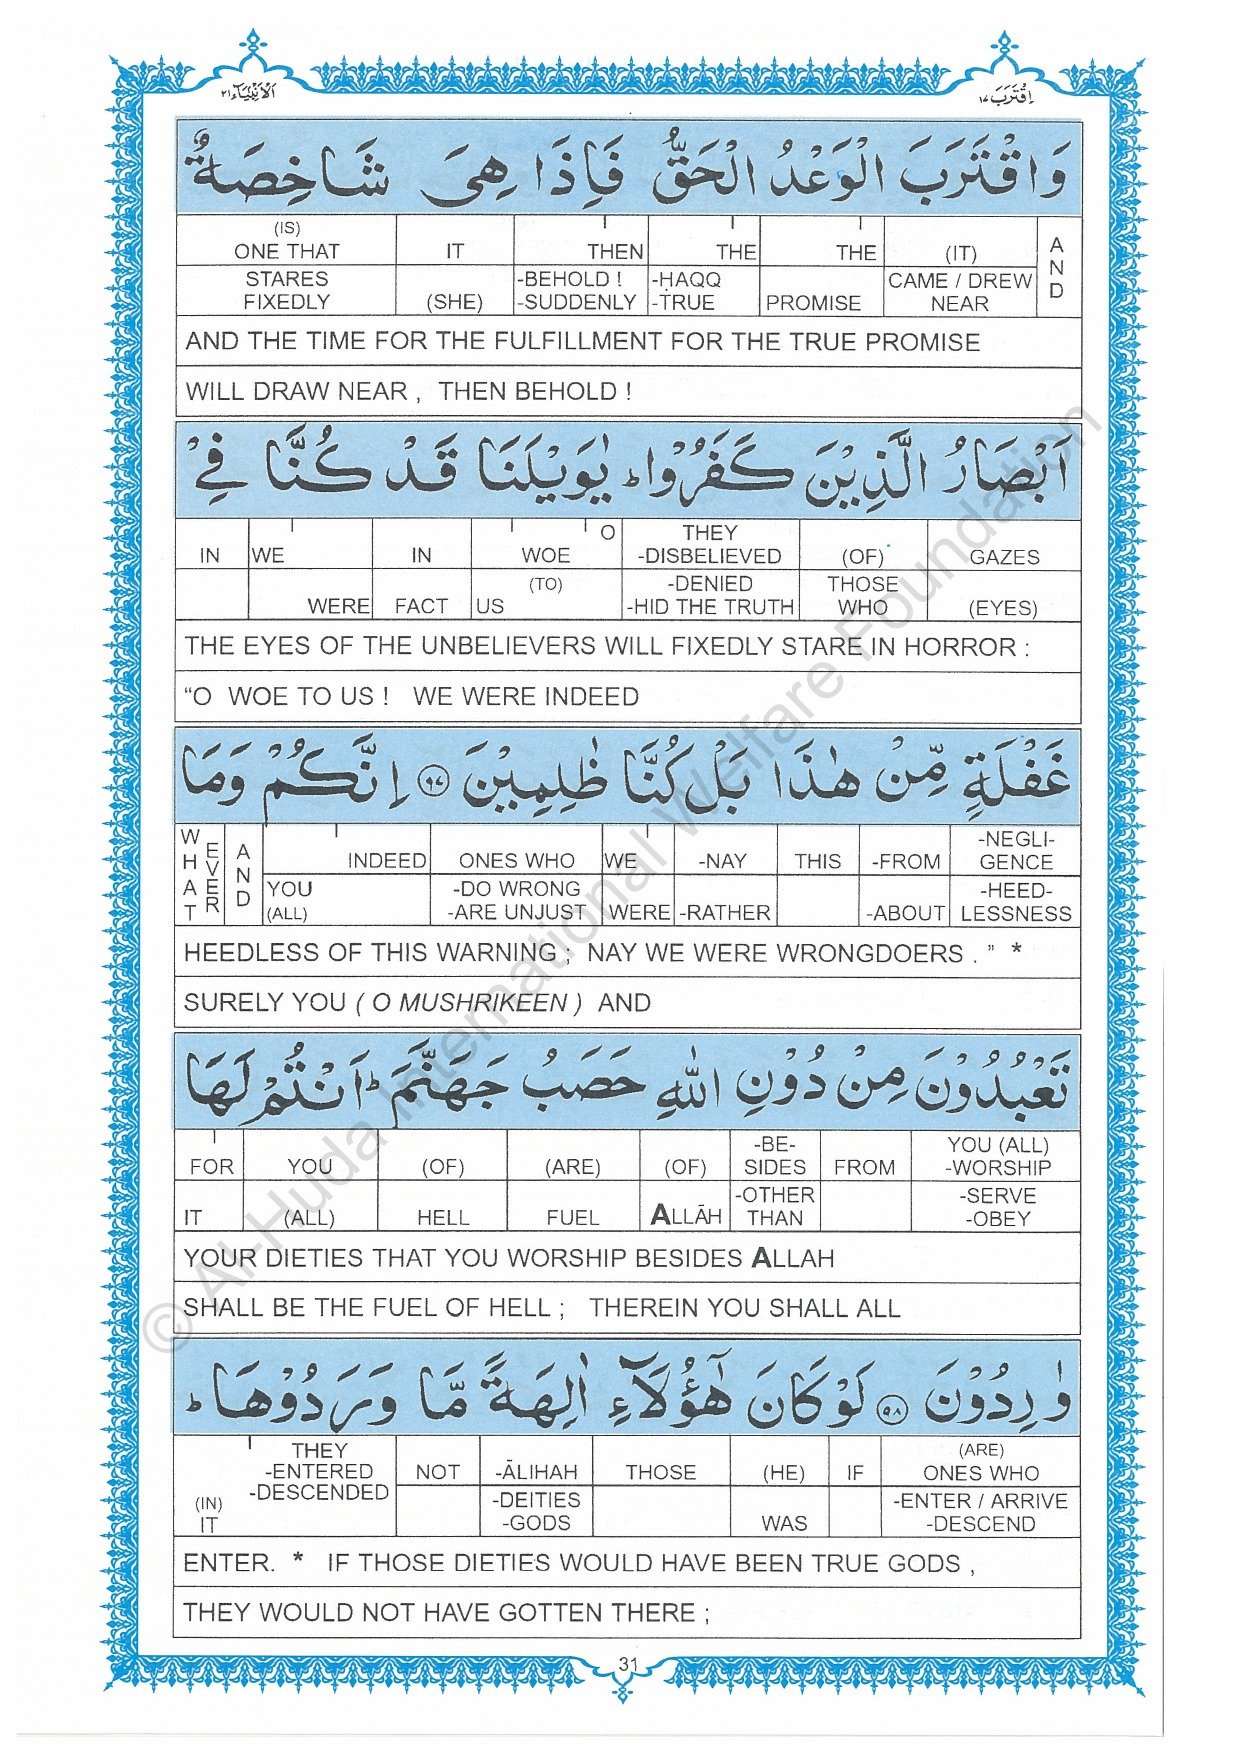 الأنبياء ٢١
اقترب ١٧
وَاقْتَرَبَ الْوَعْدُ الْحَقُّ فَاِذَا هِىَ شَاخِصَةٌ
(IS) ONE THAT STARES FIXEDLY | IT (SHE) | THEN -BEHOLD ! -SUDDENLY | THE -ḤAQQ -TRUE | THE PROMISE | (IT) CAME / DREW NEAR | AND
AND THE TIME FOR THE FULFILLMENT FOR THE TRUE PROMISE
WILL DRAW NEAR , THEN BEHOLD !
اَبْصَارُ الَّذِيْنَ كَفَرُوْا ؕ يٰوَيْلَنَا قَدْ كُنَّا فِىْ
IN | WE WERE | IN FACT | O WOE (TO) US | THEY -DISBELIEVED -DENIED -HID THE TRUTH | (OF) THOSE WHO | GAZES (EYES)
THE EYES OF THE UNBELIEVERS WILL FIXEDLY STARE IN HORROR :
“O WOE TO US ! WE WERE INDEED
غَفْلَةٍ مِّنْ هٰذَا بَلْ كُنَّا ظٰلِمِيْنَ ٩٧ اِنَّكُمْ وَمَا
WHAT EVER | AND | INDEED YOU (ALL) | ONES WHO -DO WRONG -ARE UNJUST | WE WERE | -NAY -RATHER | THIS | -FROM -ABOUT | -NEGLI- GENCE -HEED- LESSNESS
HEEDLESS OF THIS WARNING ; NAY WE WERE WRONGDOERS . ” *
SURELY YOU ( O MUSHRIKEEN ) AND
تَعْبُدُوْنَ مِنْ دُوْنِ اللّٰهِ حَصَبُ جَهَنَّمَ ؕ اَنْتُمْ لَهَا
FOR IT | YOU (ALL) | (OF) HELL | (ARE) FUEL | (OF) ALLĀH | -BE- SIDES -OTHER THAN | FROM | YOU (ALL) -WORSHIP -SERVE -OBEY
YOUR DIETIES THAT YOU WORSHIP BESIDES ALLAH
SHALL BE THE FUEL OF HELL ; THEREIN YOU SHALL ALL
وٰرِدُوْنَ ٩٨ لَوْ كَانَ هٰٓؤُلَآءِ اٰلِهَةً مَّا وَرَدُوْهَا ؕ
(IN) IT THEY -ENTERED -DESCENDED | NOT | -ĀLIHAH -DEITIES -GODS | THOSE | (HE) WAS | IF | (ARE) ONES WHO -ENTER / ARRIVE -DESCEND
ENTER. * IF THOSE DIETIES WOULD HAVE BEEN TRUE GODS ,
THEY WOULD NOT HAVE GOTTEN THERE ;
31
© Al-Huda International Welfare Foundation